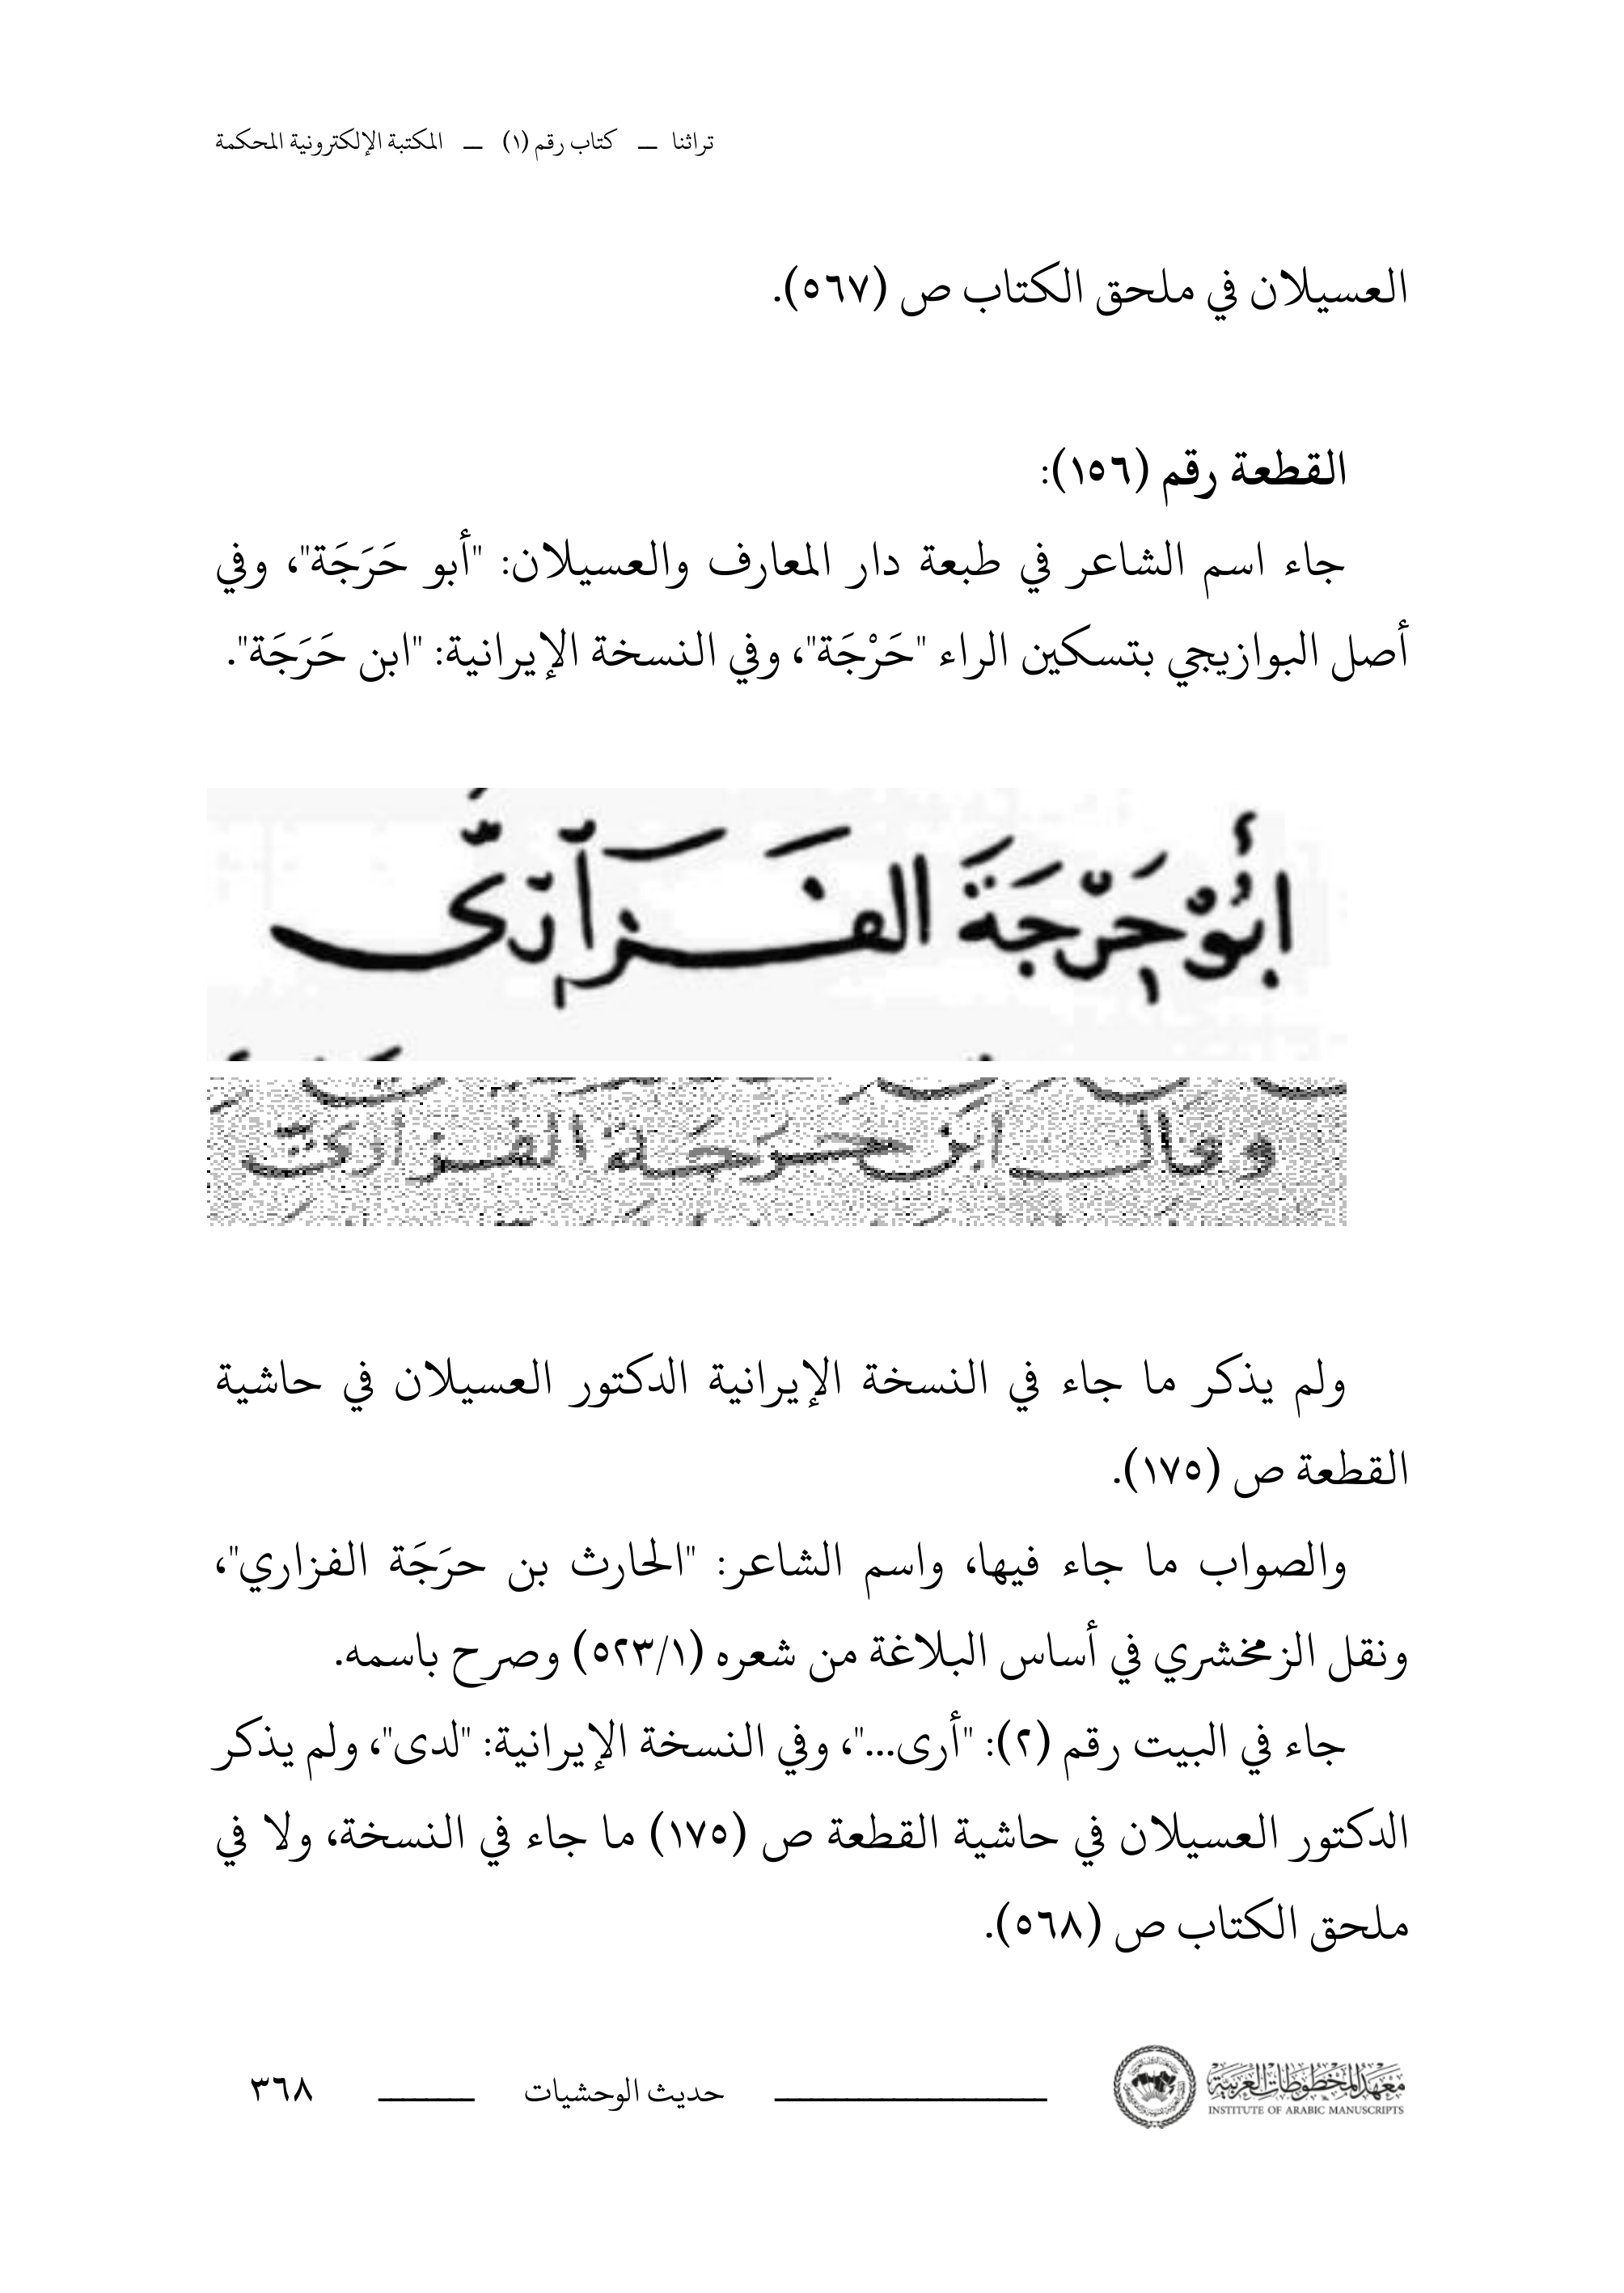 تراثنا — كتاب رقم (١) — المكتبة الإلكترونية المحكمة
العسيلان في ملحق الكتاب ص (٥٦٧).
القطعة رقم (١٥٦):
جاء اسم الشاعر في طبعة دار المعارف والعسيلان: "أبو حَرَجَة"، وفي
أصل البوازيجي بتسكين الراء "حَرْجَة"، وفي النسخة الإيرانية: "ابن حَرَجَة".
أبُوْ حَرْجَةَ الفَزَارِيُّ
وقال ابن حَرَجَة الفزاريّ
ولم يذكر ما جاء في النسخة الإيرانية الدكتور العسيلان في حاشية
القطعة ص (١٧٥).
والصواب ما جاء فيها، واسم الشاعر: "الحارث بن حرَجَة الفزاري"،
ونقل الزمخشري في أساس البلاغة من شعره (٥٢٣/١) وصرح باسمه.
جاء في البيت رقم (٢): "أرى..."، وفي النسخة الإيرانية: "لدى"، ولم يذكر
الدكتور العسيلان في حاشية القطعة ص (١٧٥) ما جاء في النسخة، ولا في
ملحق الكتاب ص (٥٦٨).
معهد المخطوطات العربية
INSTITUTE OF ARABIC MANUSCRIPTS
حديث الوحشيات
٣٦٨